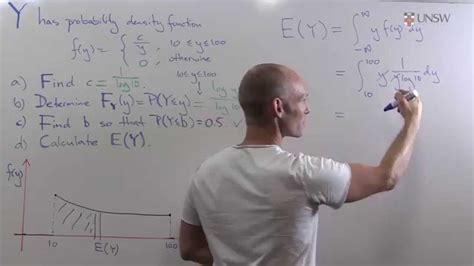 Y has probability density function
f(y) = { c/y , 10 ≤ y ≤ 100
0 , otherwise
a) Find c = 1/log 10
b) Determine F_Y(y) = P(Y ≤ y)
c) Find b so that P(Y ≤ b) = 0.5. ✓
d) Calculate E(Y).
f(y)
10
E(Y)
100
UNSW
E(Y) = ∫_{-∞}^{∞} y f(y) dy
= ∫_{10}^{100} y 1/(y log 10) dy
=